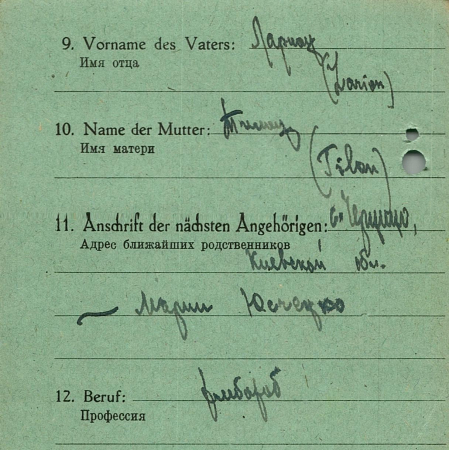 9. Vorname des Vaters: Ларион
Имя отца
(Larion)
10. Name der Mutter:
Имя матери
11. Anschrift der nächsten Angehörigen: с.
Адрес ближайших родственников
Киевской обл.
Марии
12. Beruf: хлибороб
Профессия